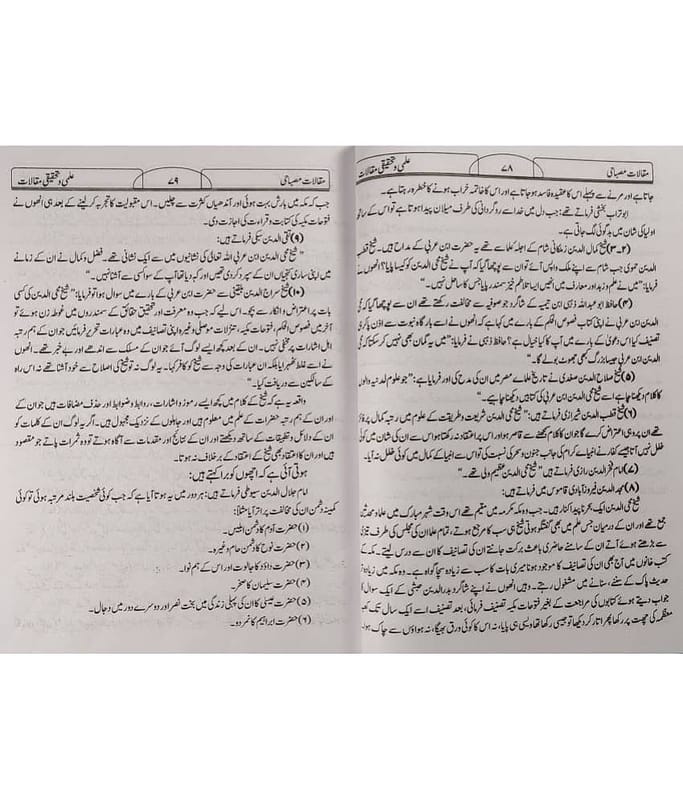 مقالات مصباحی ۷۸ علمی و تحقیقی مقالات
جاتا ہے اور مرنے سے پہلے اس کا عقیدہ فاسد ہو جاتا ہے اور اس کا خاتمہ خراب ہونے کا خطرہ رہتا ہے۔
ابو تراب بخشی فرماتے تھے: جب دل میں خدا سے روگردانی کی طرف میلان پیدا ہوتا ہے تو اس کے ساتھ
اولیا کی شان میں بدگوئی لگ جاتی ہے۔
(۲-۳) شیخ کمال الدین زملکانی شام کے اجلہ علما سے تھے یہ حضرت ابن عربی کے مداح ہیں۔ شیخ قطب
الدین حموی جب شام سے اپنے ملک واپس آئے تو ان سے پوچھا گیا کہ آپ نے شیخ محی الدین کو کیسا پایا؟ انھوں نے
فرمایا: ”میں نے علم و زہد اور معارف میں انھیں ایسا تلاطم خیز سمندر پایا جس کا ساحل نہیں۔“
(۴) حافظ ابو عبداللہ ذہبی ابن تیمیہ کے شاگرد جو صوفیہ سے مخالفت رکھتے تھے ان سے پوچھا گیا کہ
الدین ابن عربی نے اپنی کتاب فصوص الحکم کے بارے میں کہا ہے کہ انھوں نے اسے بارگاہ نبوت سے اذن پا کر
تصنیف کیا اس دعویٰ کے بارے میں آپ کا کیا خیال ہے؟ حافظ ذہبی نے فرمایا: ”میں یہ گمان بھی نہیں کر سکتا کہ
الدین ابن عربی جیسا بزرگ کبھی جھوٹ بولے گا۔“
(۵) شیخ صلاح الدین صفدی نے تاریخ علماے مصر میں ان کی مدح کی اور فرمایا ہے: ”جو علوم لدنیہ والوں
کا کلام دیکھنا چاہے اسے شیخ محی الدین ابن عربی کی کتابیں دیکھنا چاہیے۔“
(۶) شیخ قطب الدین شیرازی فرماتے ہیں: ”شیخ محی الدین شریعت و طریقت کے علوم میں رتبہ کمال پر فائز
تھے ان پر وہی اعتراض کرے گا جو ان کا کلام سمجھنے سے قاصر ہو اور اس پر اعتقاد نہ رکھتا ہو اس سے ان کی شان میں کوئی
خلل نہیں آتا جیسے کفار نے انبیاے کرام کی جانب جنون و سحر کی نسبت کی تو اس سے انبیا کے کمال میں کوئی خلل نہ آیا۔
(۷) امام فخر الدین رازی فرماتے ہیں ”شیخ محی الدین عظیم ولی تھے۔“
(۸) مجد الدین فیروز آبادی قاموس میں فرماتے ہیں:
شیخ محی الدین ایک بحر ناپیدا کنار ہیں۔ جب وہ مکہ مکرمہ میں مقیم تھے اس وقت شہر مبارک میں علما و محدثین
جمع تھے اور ان کے درمیان جس علم میں بھی گفتگو ہوتی شیخ ہی سب کا مرجع ہوتے، تمام علما ان کی مجلس کی طرف تیزی
سے بڑھتے ہوئے آتے ان کے سامنے حاضری باعث برکت جانتے ان کی تصانیف کا ان سے درس لیتے۔ مکہ کے
کتب خانوں میں آج بھی ان کی تصانیف کا موجود ہونا میری بات کا سب سے زیادہ سچا گواہ ہے۔ وہ مکہ میں زیادہ تر
حدیث پاک کے سننے، سنانے میں مشغول رہتے۔ وہیں انھوں نے اپنے شاگرد بدر الدین حبشی کے ایک سوال کا
جواب دیتے ہوئے کتابوں کی مراجعت کے بغیر فتوحات مکیہ تصنیف فرمائی، بعد تصنیف اسے ایک سال تک کعبہ
معظمہ کی چھت پر رکھا پھر اتار کر دیکھا تو جیسی رکھا تھا ویسی ہی پایا، نہ اس کا کوئی ورق بھیگا، نہ ہواؤں سے چاک ہوا۔
مقالات مصباحی ۷۹ علمی و تحقیقی مقالات
جب کہ مکہ میں بارش بہت ہوئی اور آندھیاں کثرت سے چلیں۔ اس مقبولیت کا تجربہ کر لینے کے بعد ہی انھوں نے
فتوحات مکیہ کی کتابت و قراءت کی اجازت دی۔
(۹) تقی الدین سبکی فرماتے ہیں:
”شیخ محی الدین ابن عربی اللہ تعالی کی نشانیوں میں سے ایک نشانی تھے۔ فضل و کمال نے ان کے زمانے
میں اپنی ساری کنجیاں ان کے سپرد کر دی تھیں اور کہہ دیا تھا آپ کے سوا کسی سے آشنا نہیں۔“
(۱۰) شیخ سراج الدین بلقینی سے حضرت ابن عربی کے بارے میں سوال ہوا تو فرمایا: ”شیخ محی الدین کی کسی
بات پر اعتراض و انکار سے بچو۔ اس لیے کہ جب وہ معرفت اور تحقیق حقائق کے سمندروں میں غوطہ زن ہوئے تو
آخر میں فصوص الحکم، فتوحات مکیہ، تنزلات موصلی وغیرہ اپنی تصانیف میں وہ عبارات تحریر فرمائیں جو ان کے ہم رتبہ
اہل اشارات پر مخفی نہیں۔ ان کے بعد کچھ ایسے لوگ آئے جو ان کے مسلک سے اندھے اور بے خبر تھے۔ انھوں
نے اسے غلط ٹھہرایا بلکہ ان عبارات کی وجہ سے شیخ کو کافر کہا۔ یہ لوگ نہ تو شیخ کی اصلاح سے خود آشنا تھے نہ اس راہ
کے سالکین سے دریافت کیا۔“
واقعہ یہ ہے کہ شیخ کے کلام میں کچھ ایسے رموز و اشارات، روابط و ضوابط اور حذف مضافات ہیں جو ان کے
اور ان کے ہم رتبہ حضرات کے علم میں معلوم ہیں اور جاہلوں کے نزدیک مجہول ہیں۔ اگر یہ لوگ ان کے کلمات کو
ان کے دلائل و تطبیقات کے ساتھ دیکھتے اور ان کے نتائج اور مقدمات سے آگاہ ہوتے تو وہ ثمرات پاتے جو مقصود
ہیں اور ان کا اعتقاد بھی شیخ کے اعتقاد کے برخلاف نہ ہوتا۔
ہوتی آئی ہے کہ اچھوں کو برا کہتے ہیں:
امام جلال الدین سیوطی فرماتے ہیں: ہر دور میں یہ ہوتا آیا ہے کہ جب کوئی شخصیت بلند مرتبہ ہوئی تو کوئی
کمینہ دشمن ان کی مخالفت پر اتر آیا مثلاً:
(۱) حضرت آدم کا دشمن ابلیس۔
(۲) حضرت نوح کا دشمن حام وغیرہ۔
(۳) حضرت داؤد کا جالوت اور اس کے ہم نوا۔
(۴) حضرت سلیمان کا صخر۔
(۵) حضرت عیسیٰ کا ان کی پہلی زندگی میں بخت نصر اور دوسرے دور میں دجال۔
(۶) حضرت ابراہیم کا نمرود۔